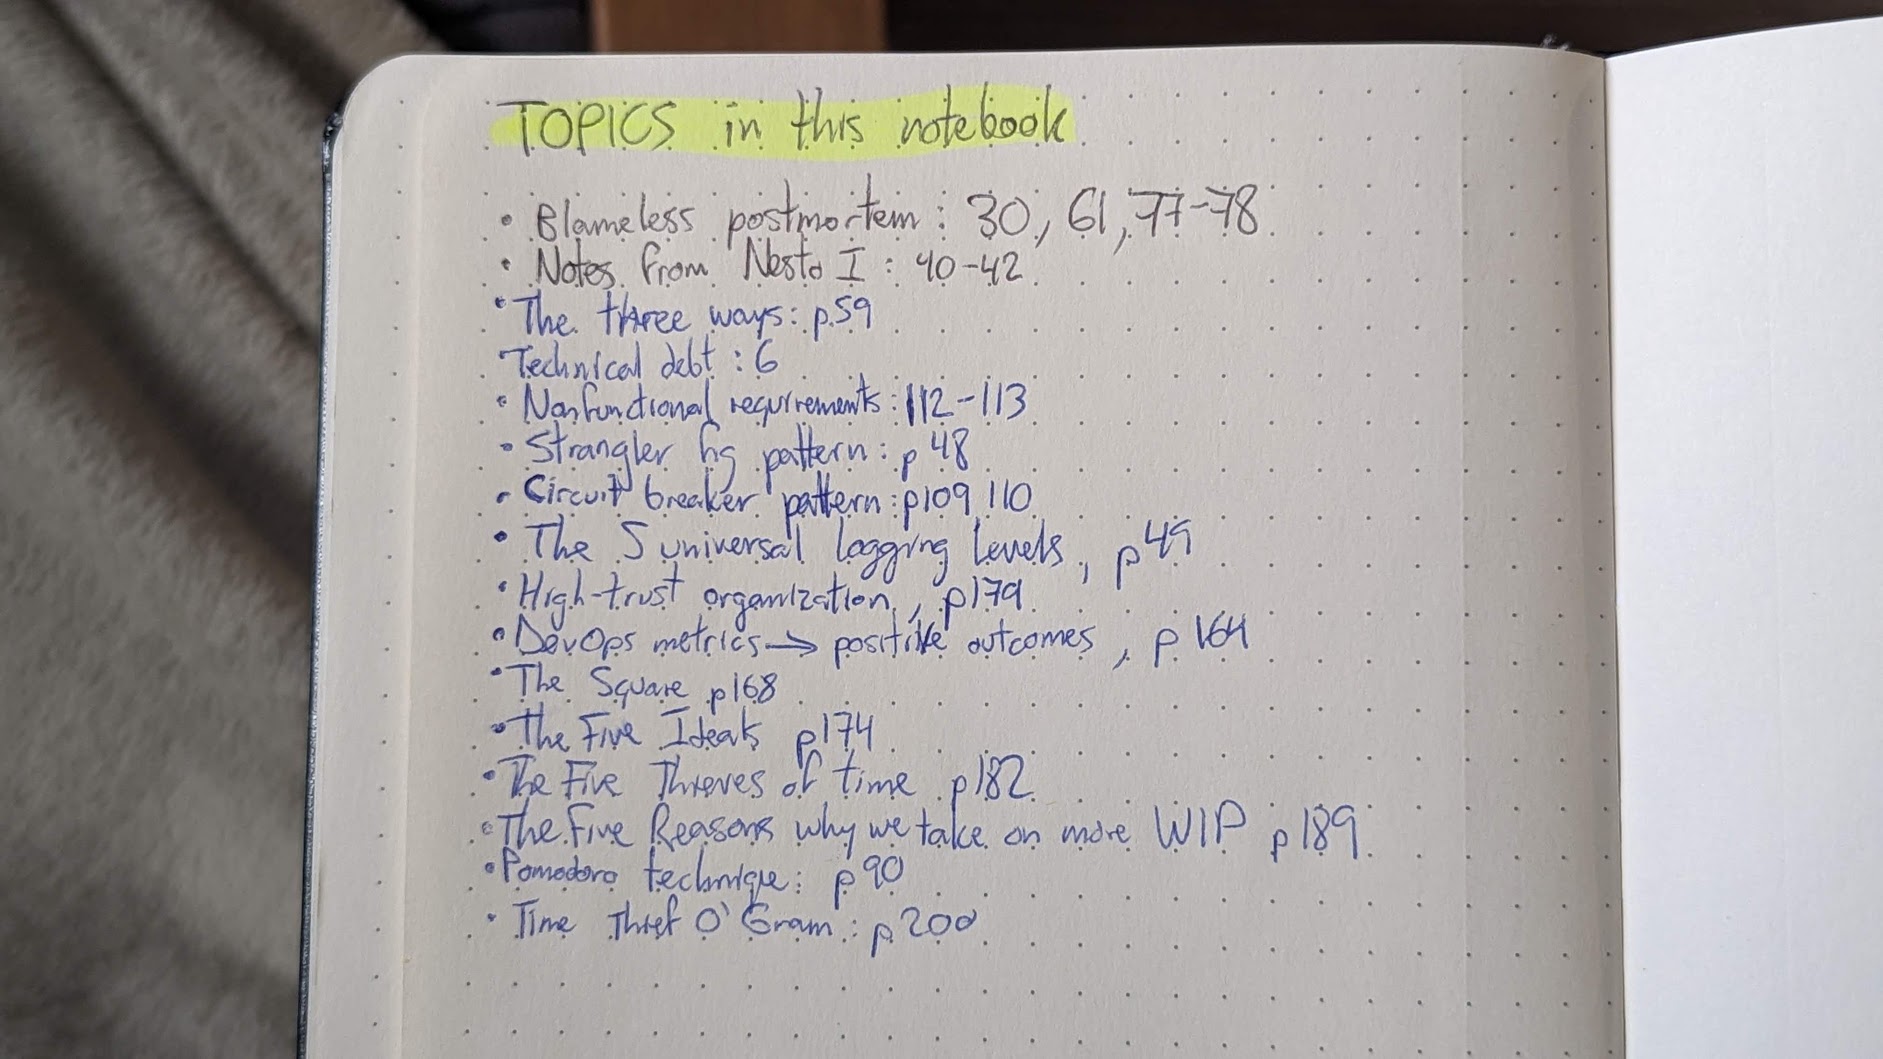 TOPICS in this notebook
• Blameless postmortem: 30, 61, 77-78
• Notes from Nesto I: 40-42
• The three ways: p.59
Technical debt: 6
• Nonfunctional requirements: 112-113
• Strangler fig pattern: p 48
• Circuit breaker pattern: p109 110
• The 5 universal logging levels, p49
• High-trust organization, p179
• DevOps metrics → positive outcomes, p 164
• The Square p168
• The Five Ideals p174
• The Five Thieves of time p182
• The Five Reasons why we take on more WIP p 189
• Pomodoro technique: p90
• Time Thief O'Gram: p200